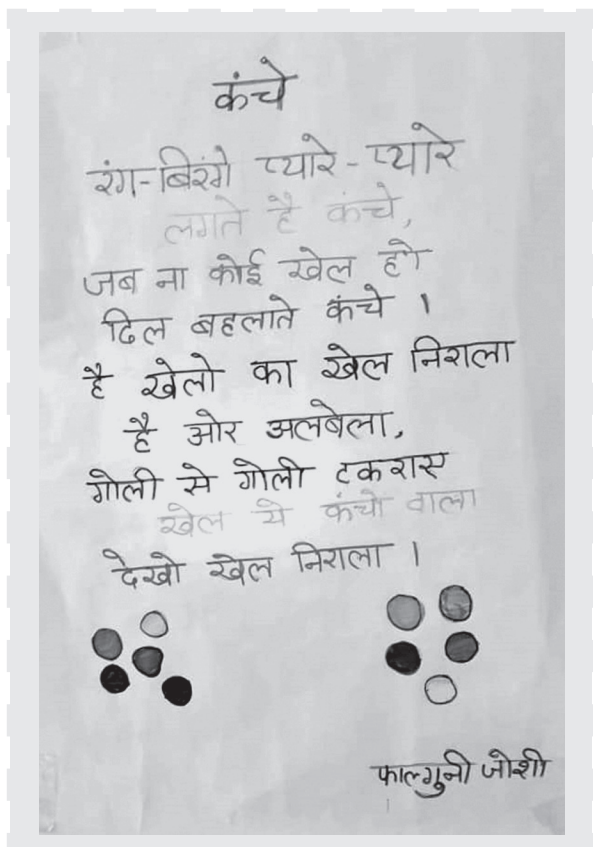 कंचे
रंग-बिरंगे प्यारे-प्यारे
लगते है कंचे,
जब ना कोई खेल हो
दिल बहलाते कंचे ।
है खेलो का खेल निराला
है ओर अलबेला,
गोली से गोली टकराए
खेल ये कंचो वाला
देखो खेल निराला ।
फाल्गुनी जोशी